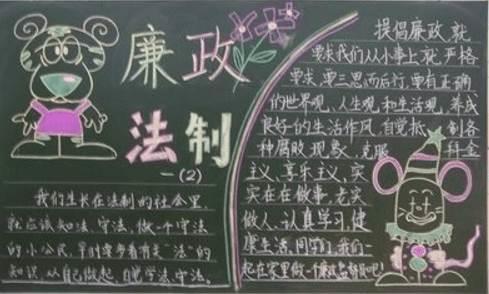 廉政
法制
一(2)
我们生长在法制的社会里
就应该知法、守法、做一个守法
的小公民,平时要多看有关“法”的
知识,从自己做起,自觉学法、守法。
提倡廉政,就
要求我们从小事上就严格
要求,要三思而后行,要有正确
的世界观、人生观和生活观,养成
良好的生活作风,自觉抵制各
种腐败现象,克服拜金
主义、享乐主义,实
实在在做事,老实
做人、认真学习,健
康生活,同学们,我们一
起在家里做一个廉政监督员吧!